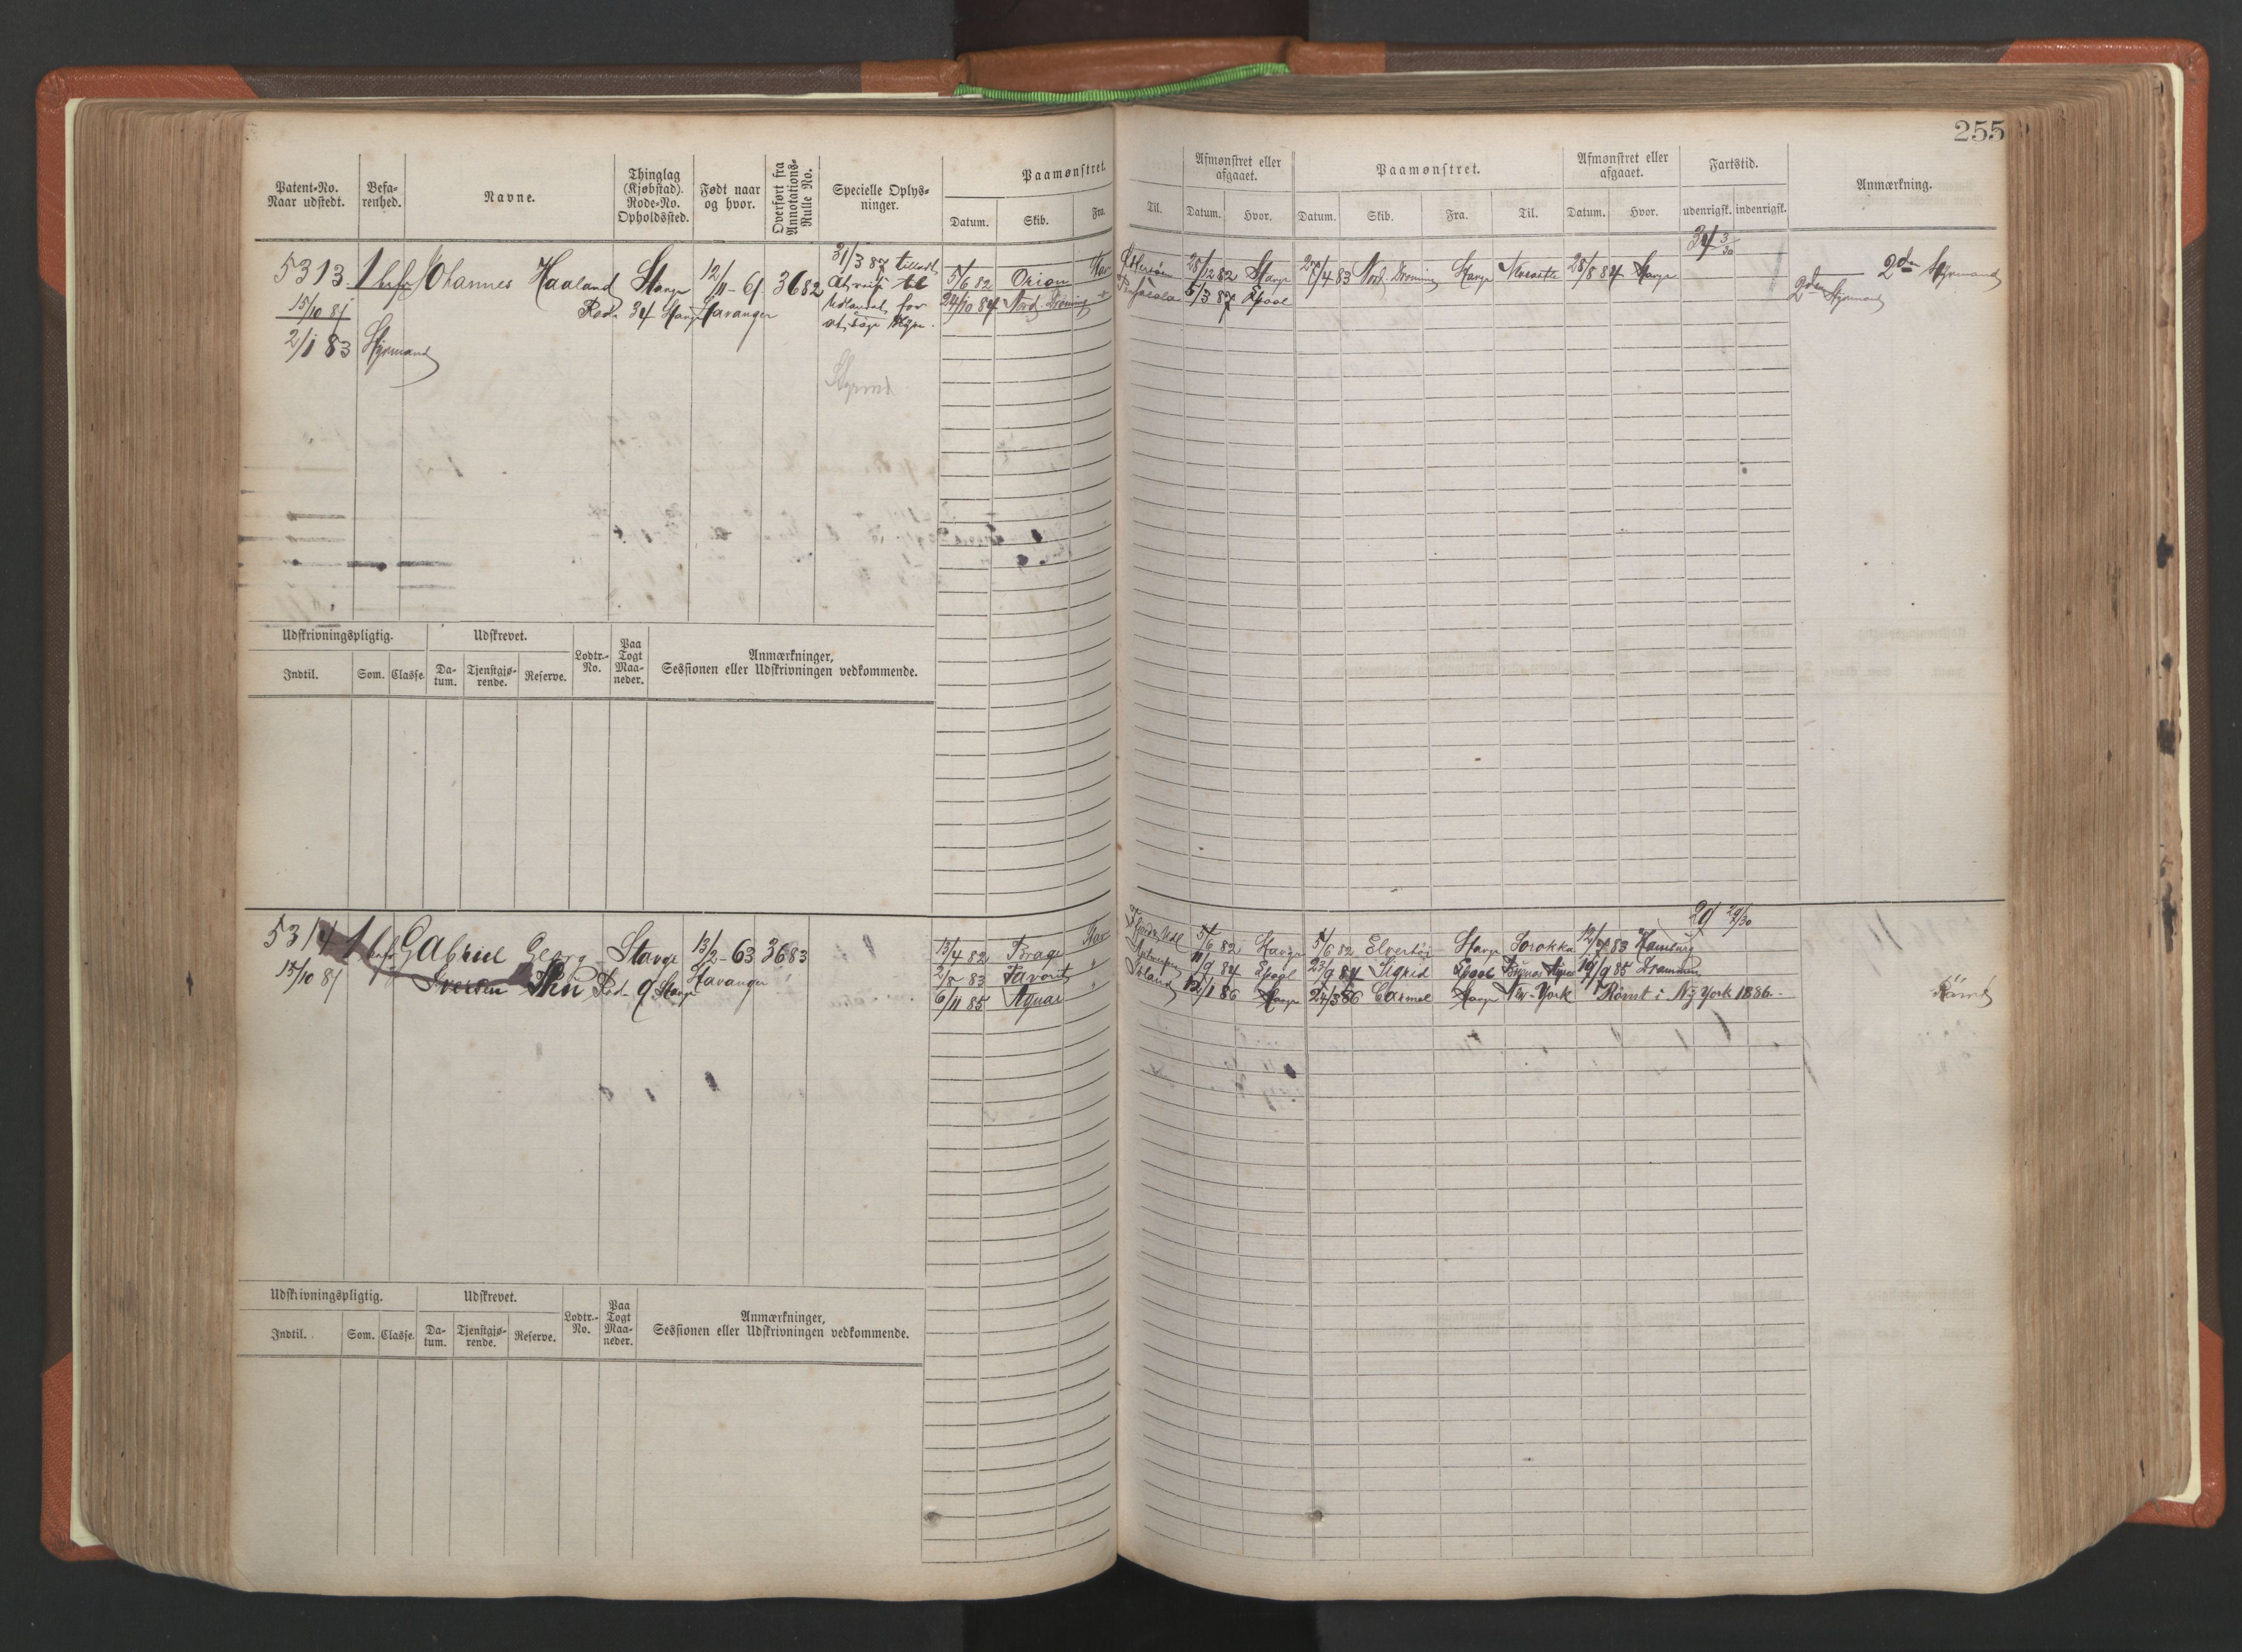 255
Patent-No. Naar udstedt.
Befa-renhed.
Navne.
Thinglag (Kjøbstad). Rode-No. Opholdssted.
Født naar og hvor.
Overført fra Annotations-Rulle No.
Specielle Oplys-ninger.
Paamønstret.
Datum. Skib. Fra. Til.
Afmønstret eller afgaaet.
Datum. Hvor.
Paamønstret.
Datum. Skib. Fra. Til.
Afmønstret eller afgaaet.
Datum. Hvor.
Fartstid.
udenrigsk. indenrigsk.
Anmærkning.
5313 Johannes Haaland Stavgr 12/11-61 3682
15/10 81 Rode 34 Stavgr Stavanger
2/1 83 Styrmand
31/3 87 tilladt at reise til Udlandet for at søge Hyre.
Styrmd
5/6 82 Orion Stav 28/12 82 Stavgr 27/4 83 Nord. Dronning Stavgr 28/8 84 Stavgr
24/10 84 Nord. Dronning Pensacola 5/3 87 Lpool
34 3/30
2den Styrmand
2den Styrmand
Udskrivningspligtig.
Indtil. Som. Classe.
Udskrevet.
Da-tum. Tjenstgjø-rende. Reserve.
Lodtr.-No.
Paa Togt Maa-neder.
Anmærkninger,
Sessionen eller Udskrivningen vedkommende.
5314 Gabriel Georg Stavgr 13/2-63 3683
15/10 81 Iversen Rod- 9 Stavgr Stavanger
29 29/30
13/4 82 Brage Stav 5/6 82 Stavgr 5/6 82 Stavgr Sorokka 12/7 83 Hamburg
2/8 83 Favorit Antwerpen 11/9 84 Lpool 23/9 84 Sigrid Lpool Buenos Ayres 19/9 85 Drammen
6/11 85 Aquar Irland 12/1 86 Stavgr 24/3 86 Carmel Stavgr New-York Rømt i NyYork 1886.
Rømt
Udskrivningspligtig.
Indtil. Som. Classe.
Udskrevet.
Da-tum. Tjenstgjø-rende. Reserve.
Lodtr.-No.
Paa Togt Maa-neder.
Anmærkninger,
Sessionen eller Udskrivningen vedkommende.